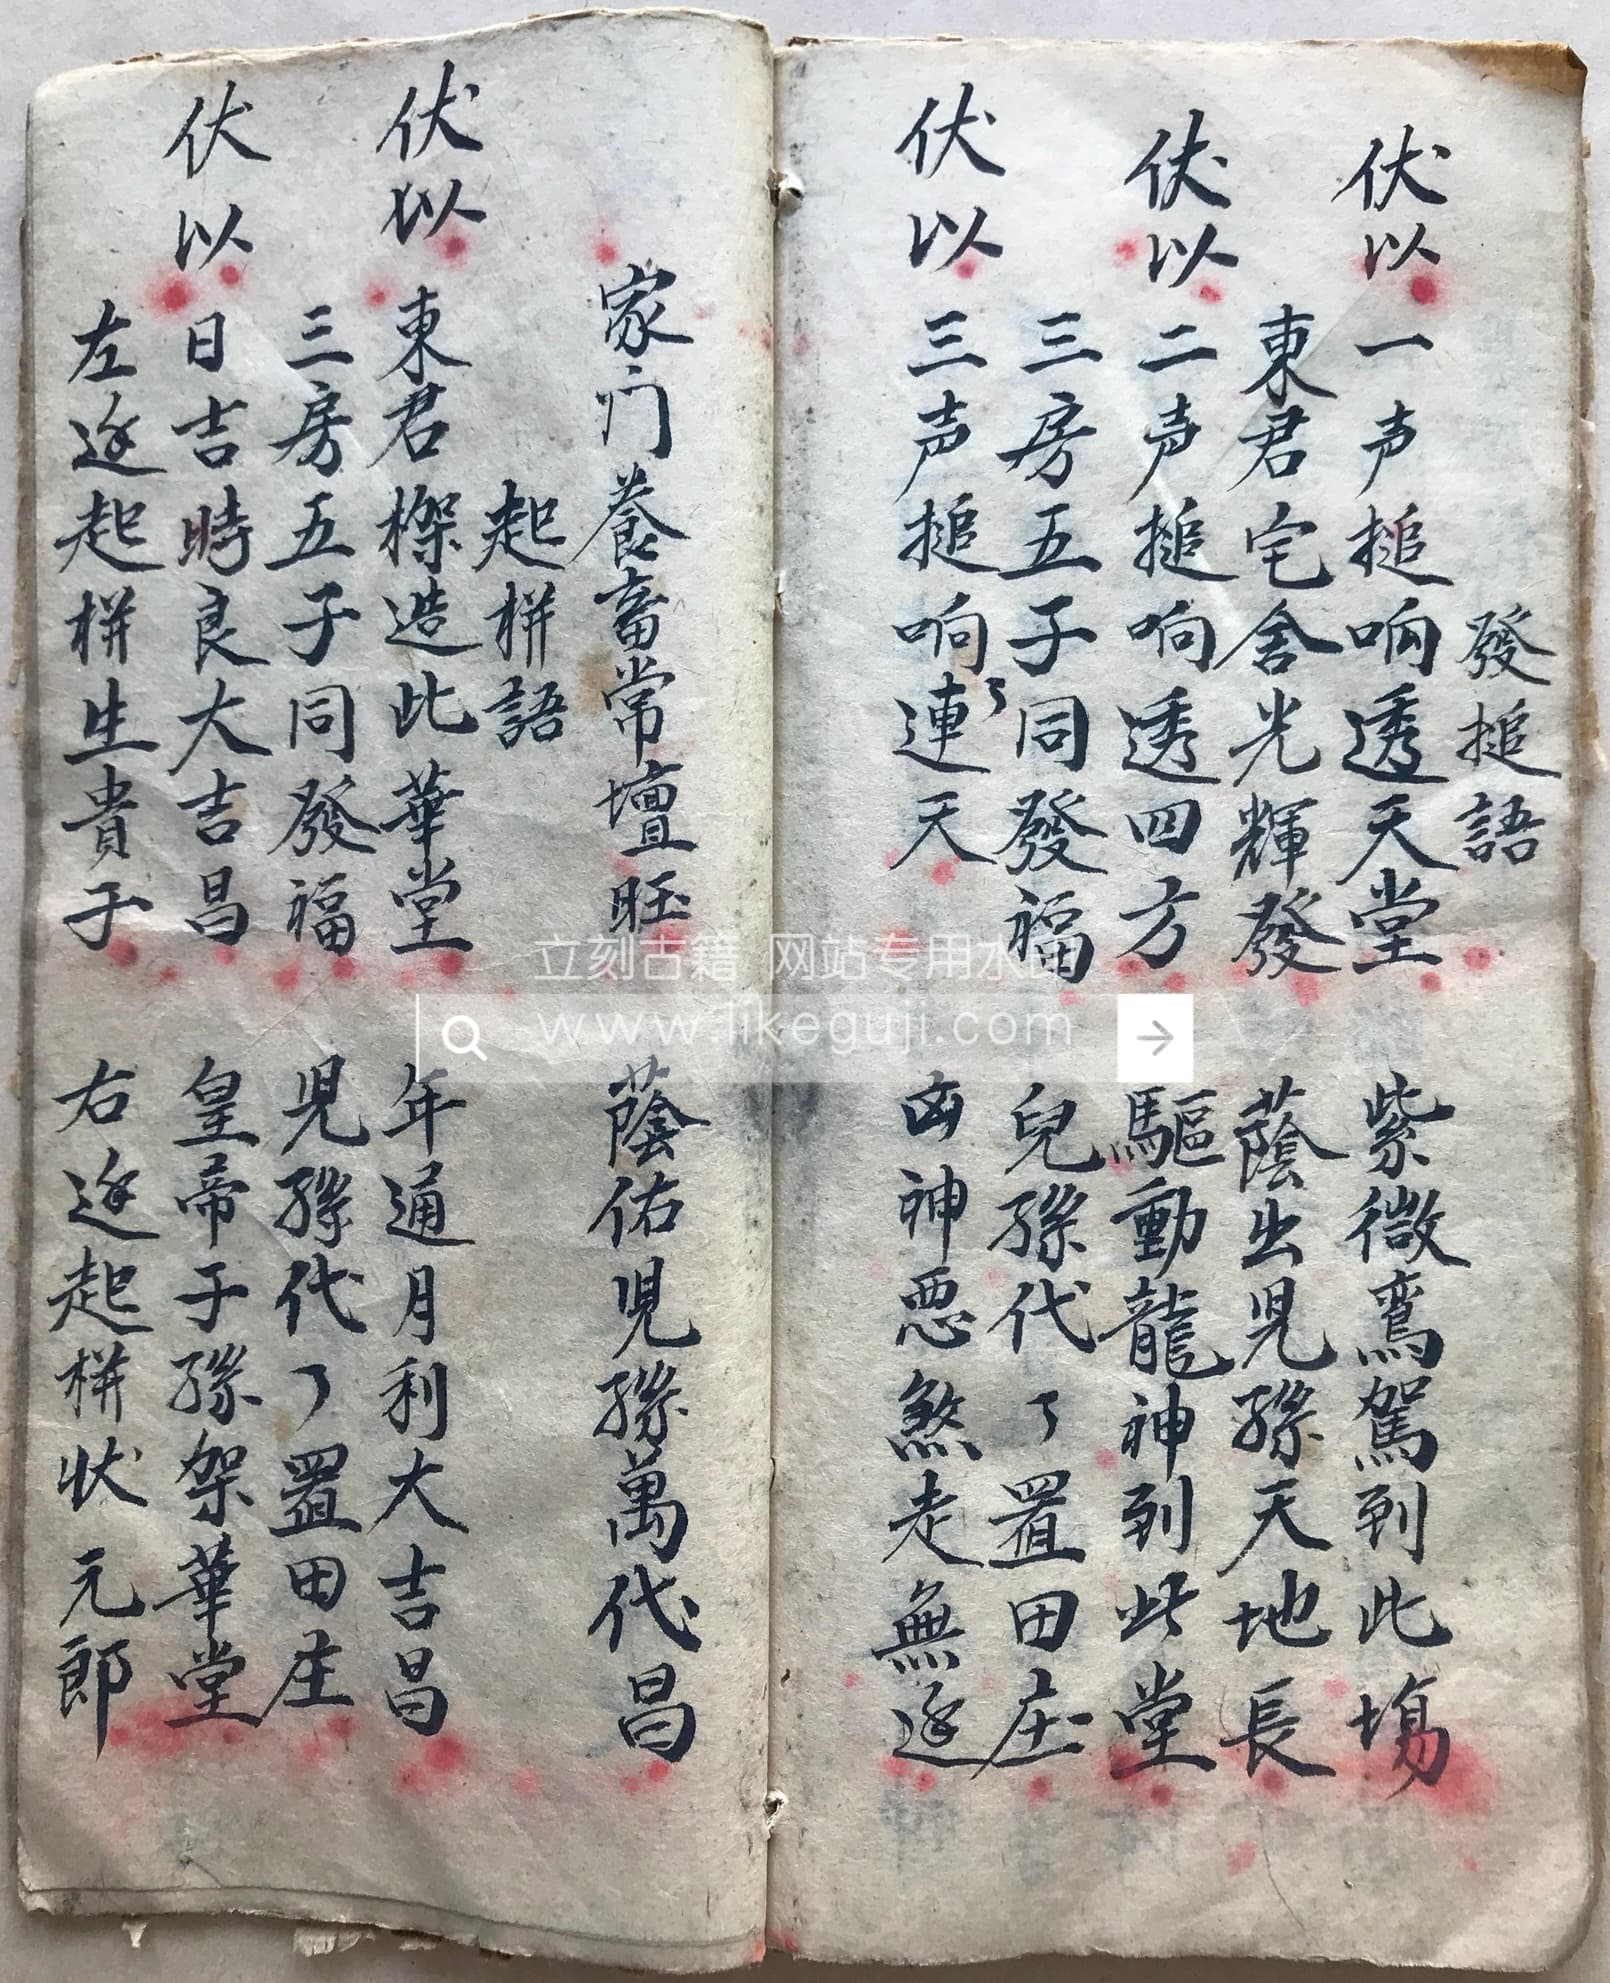 發搥語
伏以 一声搥响透天堂 紫微鸞駕到此場
東君宅舍光輝發 蔭出児孫天地長
伏以 二声搥响透四方 驅動龍神到此堂
三房五子同發福 兒孫代了置田庄
伏以 三声搥响了連天 凶神恶煞走無迯
家门養畜常壇旺 蔭佑児孫萬代昌
起栟語
伏以 東君㮮造此華堂 年通月利大吉昌
三房五子同發福 児孫代了置田庄
伏以 日吉時良大吉昌 皇帝子孫架華堂
左迯起栟生貴子 右迯起栟状元郎
立刻古籍 网站专用水印
www.likeguji.com